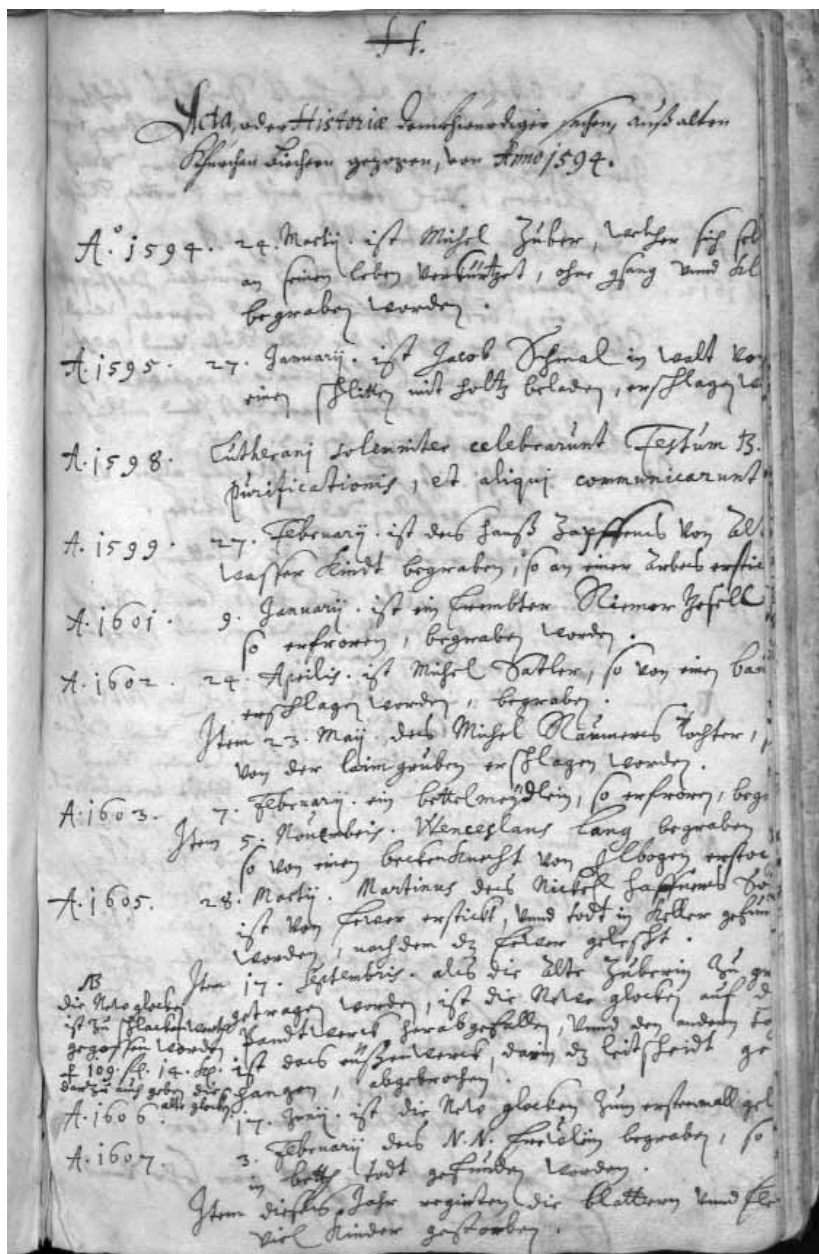 Acta, oder Historiæ denckhwürdiger sachen, auß alten
Khürchen Büechern gezogen, von Anno 1594.
A.º 1594. 24. Martij. ist Michel Zuber, welcher sich sel
an seinen leben verkürtzet, ohne gsang vnnd kl
begraben worden.
A. 1595. 27. Januarij. ist Jacob Schmal in walt von
einen schlitten mit holtz beladen, erschlagen w
A. 1598. Lutherani solenniter celebrarunt Festum B.
purificationis, et aliqui communicarunt
A. 1599. 27. Februarij. ist des hanß Zapffens von
wasser kindt begraben, so an einer Arbeis erstic
A. 1601. 9. Januarij. ist ein frembter Riemer gesell
so erfroren, begraben worden.
A. 1602. 24. Aprilis. ist Michel Satler, so von einen bau
erschlagen worden, begraben.
Item 23. Maij des Michel Raumers tochter,
von der laimgruben erschlagen worden.
A. 1603. 7. Februarij. ein bettelmeydlein, so erfroren, beg
Item 5. Nouembris. Wenceslaus Lang begraben
so von einen beckenknecht von Elbogen erstoc
A. 1605. 28. Martij. Martinus des Nickel haffners So
ist von fewer erstickt, vnnd todt in keller gefun
worden, nach dem dz fewer gelescht.
Item 17. Septembris. als die alte Zuberin zu gr
getragen worden, ist die Newe glocken auf d
handtwerck herabgefallen, vnnd den andern
ist das eüßenwerck, darin dz leitscheidt ge
hangen, abgebrochen.
NB
die New glocken
ist zu Schlackenwerth
gegossen worden
p 109. fl. 14. kr.
darzu auch geben die
alte glocken
A. 1606. 17. Junij. ist die New glocken zum erstenmall gel
A. 1607. 3. Februarij des N.N. begraben, so
in beth todt gefunden worden.
Item dieses Jahr regirten die blattern vnnd fle
viel kinder gestorben.